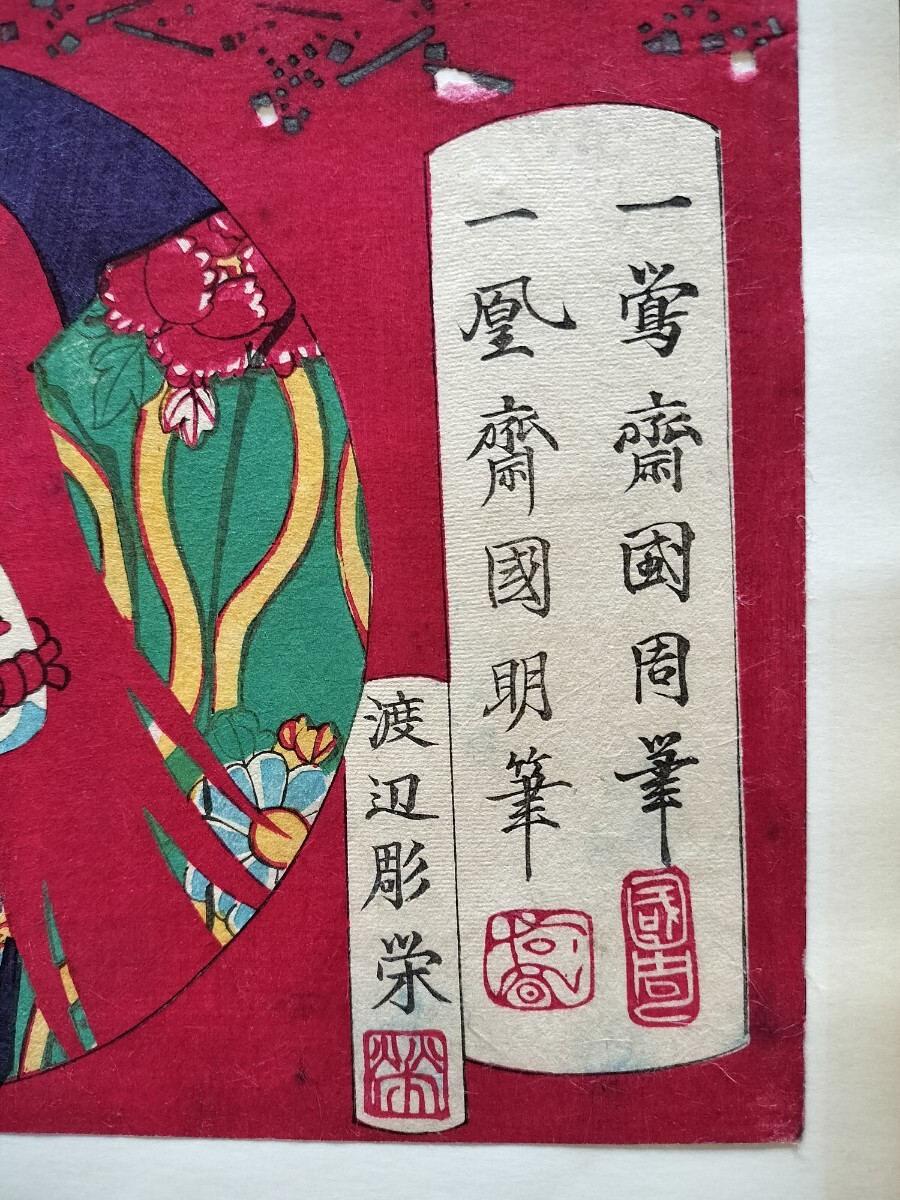 一鶯齋國周筆
國周
一凰齋國明筆
渡辺彫栄
榮